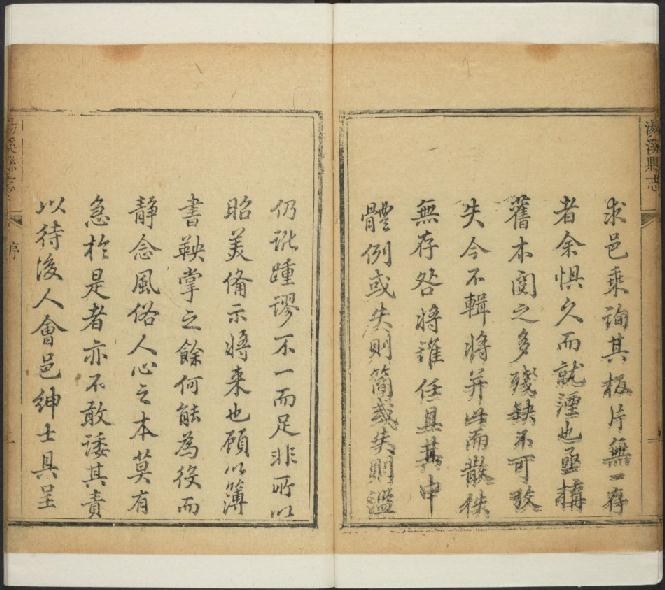 湯溪縣志
求邑乘詢其板片無一存
者余惧久而就湮也亟搆
舊本閱之多殘缺不可攷
失今不輯將并此而散佚
無存咎將誰任且其中
體例或失則簡或失則濫
仍訛踵謬不一而足非所以
昭美備示將来也顧以簿
書鞅掌之餘何能為役而
靜念風俗人心之本莫有
急於是者亦不敢諉其責
以待後人會邑紳士具呈
湯溪縣志
序